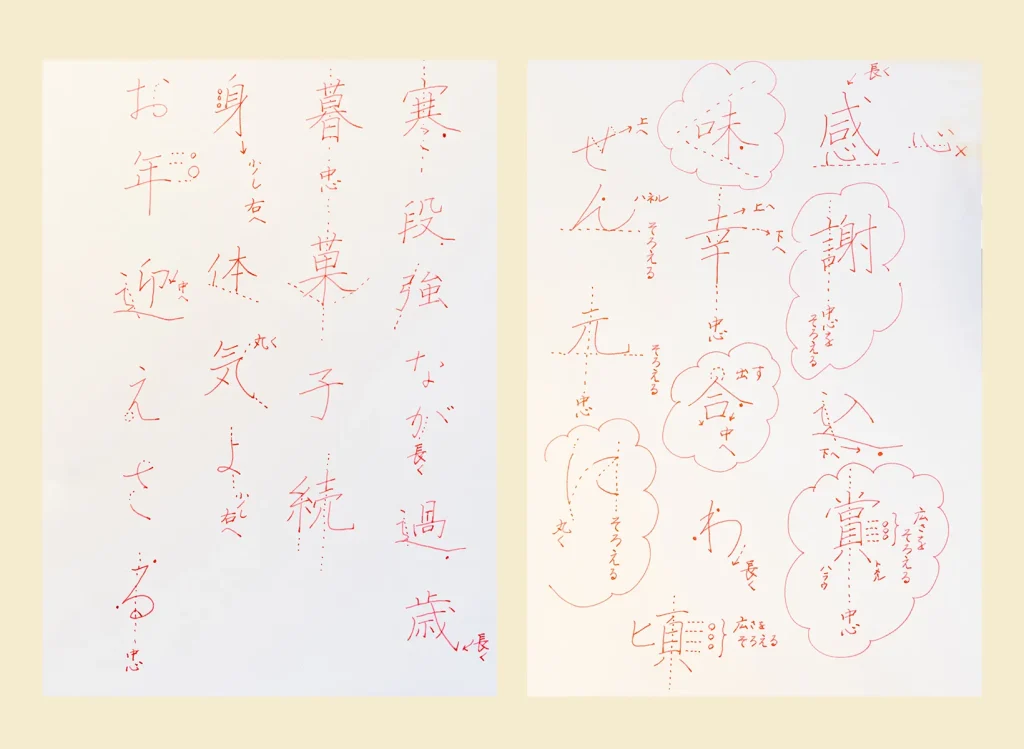 長く
感
心
謝
中心をそろえる
込
下へ
賞
広さをそろえる
ハラウ
中心
味
幸
上へ
下へ
中心
合
出す
中へ
わ
長く
頃
広さをそろえる
せ
上へ
ん
ハネル
そろえる
元
そろえる
中心
丸く
そろえる
寒段強なが
長く
過歳
長く
暮
中心
菓子続
身
少し右へ
体気
丸く
よ
少し右へ
お年迎
中へ
えさる
中心